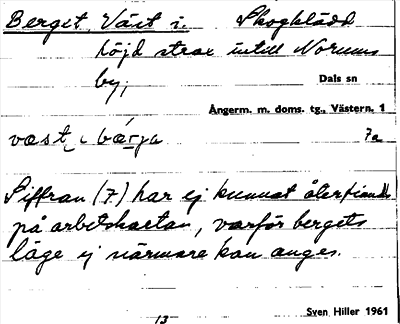 Berget, Väst i. Skogklädd
höjd strax intill Norums
by;
Dals sn
Ångerm. m. doms. tg., Västern. 1
væst i bærja 7a
Siffran (7) har ej kunnat återfinnas
på arbetskartan, varför bergets
läge ej närmare kan anges.
13
Sven Hiller 1961